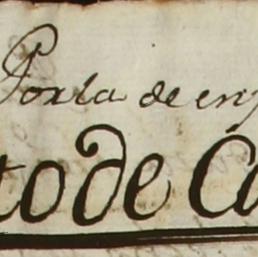 Porla de en
to de Ca